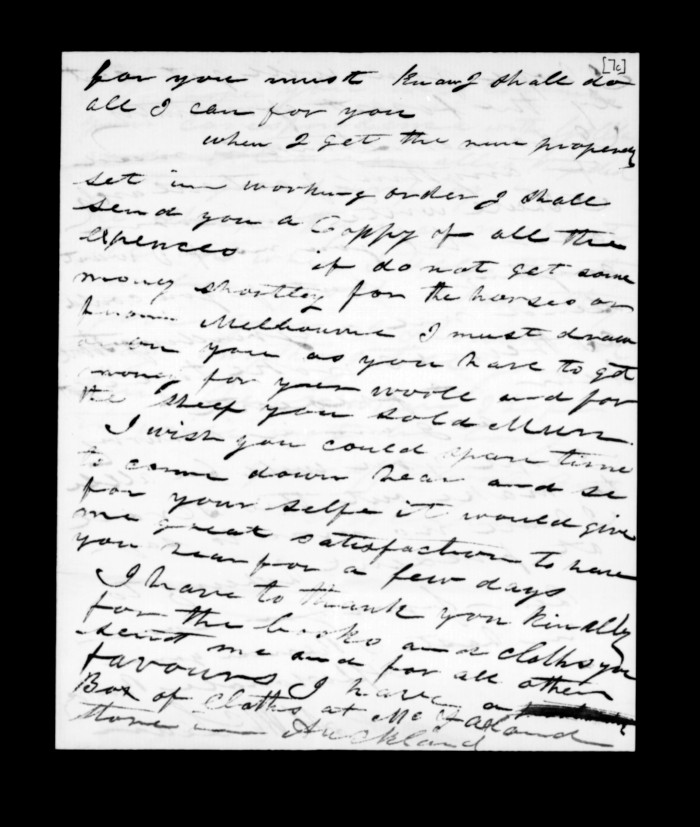 [7c]
for you must know I shall do
all I can for you
when I get the new property
set in working order I shall
send you a Coppy of all the
expences if do not get some
money shortley for the horses or
from Melbourne I must draw
on you as you have to get
money for your wooll and for
the sheep you sold
I wish you could spare time
to come down hear and se
for your selfe it would give
me great satisfaction to have
you near for a few days
I have to thank you kindly
for the books and cloths you
sent me and for all other
favours I have a
Box of Cloths at
store in Auckland